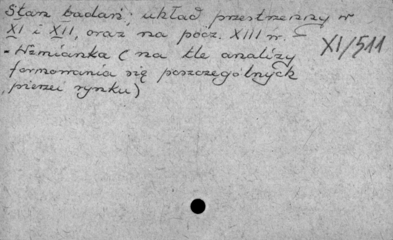 Stan badań; układ przestrzenny w
XI i XII, oraz na pocz. XIII w.
XI/511
- Wzmianka (na tle analizy
formowania się poszczególnych
pierzei rynku)